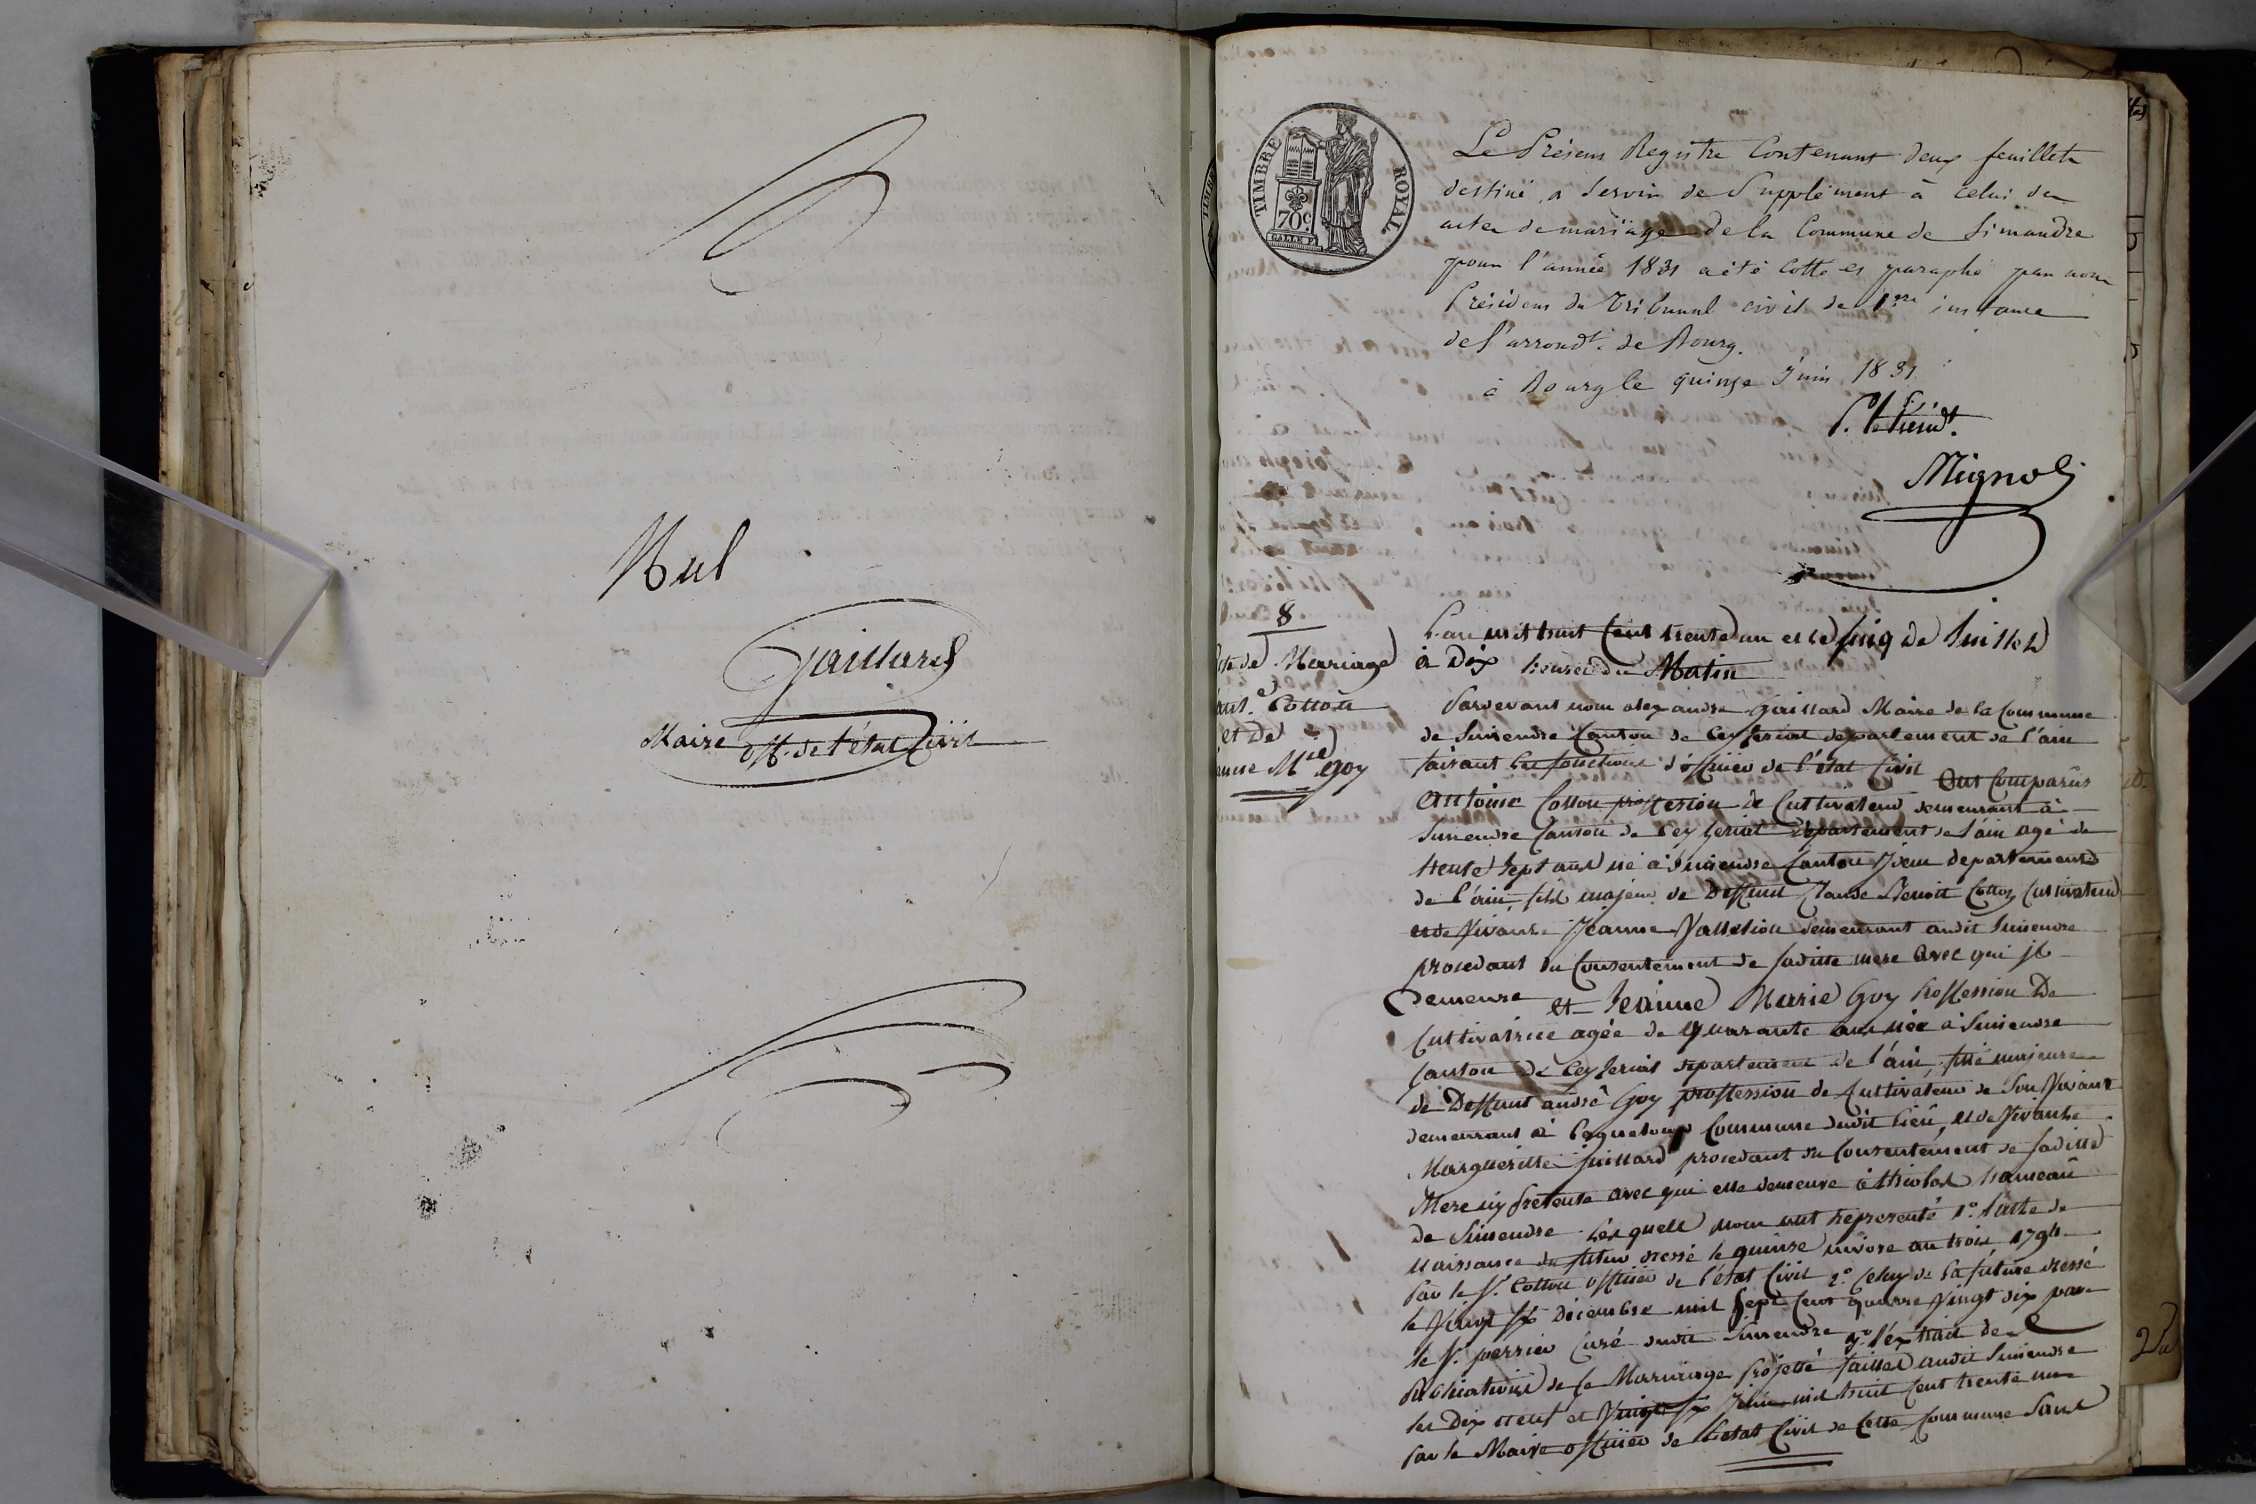 Nul
Gaillard
Maire off. de l'état Civil
TIMBRE ROYAL
70c
Le Présent Registre Contenant deux feuillets
destiné a servir de Supplément à celui des
actes de mariage de la Commune de Simandre
pour l'année 1831 a été Cotté et paraphé par nous
Président du Tribunal civil de 1ere instance
de l'arrondt. de Bourg.
à Bourg le quinze Juin 1831
P. le Présidt.
Mignot
8
de Mariage
Cotton
et de
Mie Goy
L'an mil huit Cent trente un et le Cinq de Juillet
à Dix heures du Matin
Pardevant nous andré Gaillard Maire de la Commune
de Simendre Canton de Ceyzeriat departement de l'ain
faisant les fonctions d'officier de l'état Civil Ont Comparus
Antoine Cotton proffession de Cultivateur demeurant à
Simendre Canton de Ceyzeriat departement de l'ain agé de
trente sept ans né à Simendre Canton Idem departement
de l'ain, fils majeur de Deffunt Claude Benoit Cotton Cultivateur
et de vivante Jeanne demeurant audit Simendre
procedant du Consentement de saditte mere avec qui il
Demeure et Jeanne Marie Goy Proffession De
Cultivatrice agée de quarante ans née à Simendre
Canton de Ceyzeriat departement de l'ain, fille majeure
de Deffunt andré Goy proffession de Cultivateur de Son vivant
demeurant à Commune dudit lieu, et de vivante
Margueritte Juillard procedant du Consentement de saditte
Mere icy presente avec qui elle demeure à hameau
de Simendre. Lesquels nous ont representé 1o. l'acte de
naissance du futur dressé le quinze nivose an trois 1794
Par le Sr. Cotton officier de l'état Civil 2o. Celuy de la future dressé
le vingt six Decembre mil sept Cent quatre vingt dix par
le Sr. perrier Curé dudit Simendre 3o. l'extrait des
Publications de ce Marriage projetté faittes audit Simendre
les Dix neuf et vingt six Juin mil huit Cent trente un
par le Maire officier de l'état Civil de Cette Commune Sans